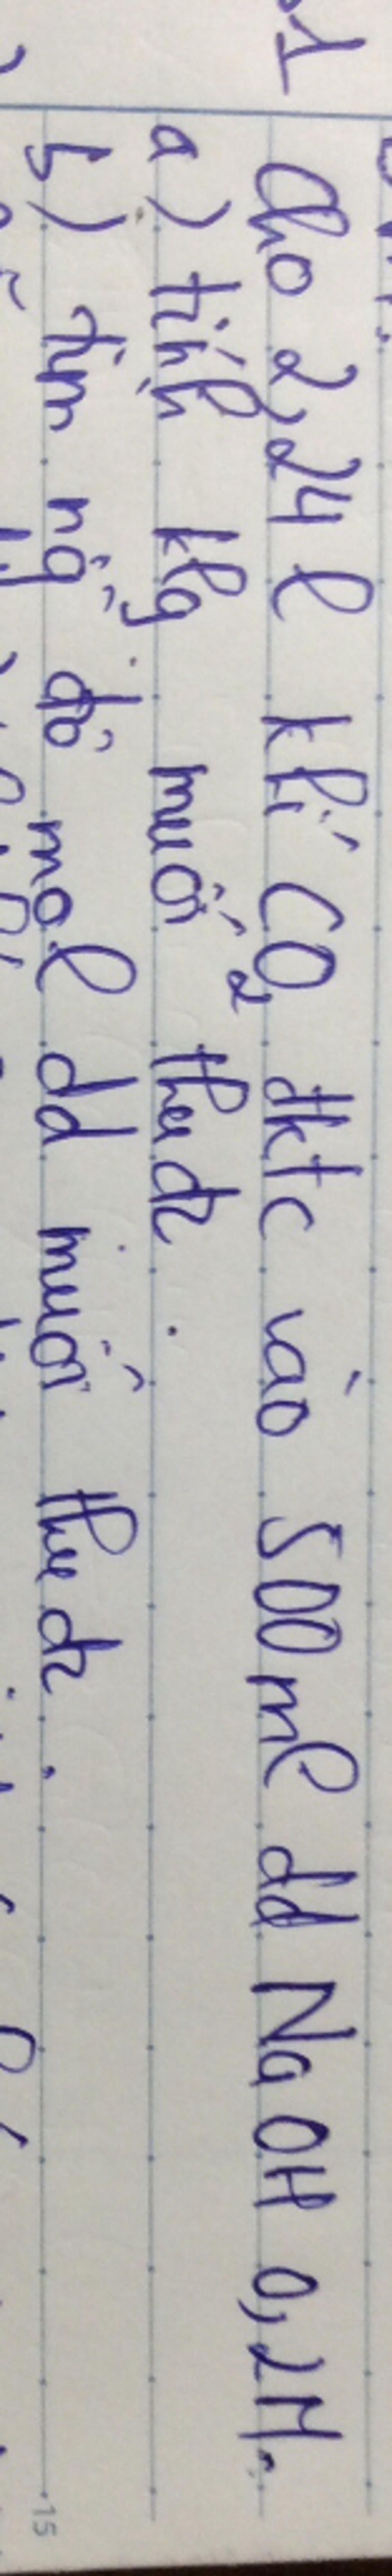 1
Cho 2,24 l khí CO2 đktc vào 500 ml dd NaOH 0,2M.
a) tính klg muối thu đc.
b) tìm ng độ mol dd muối thu đc.
15